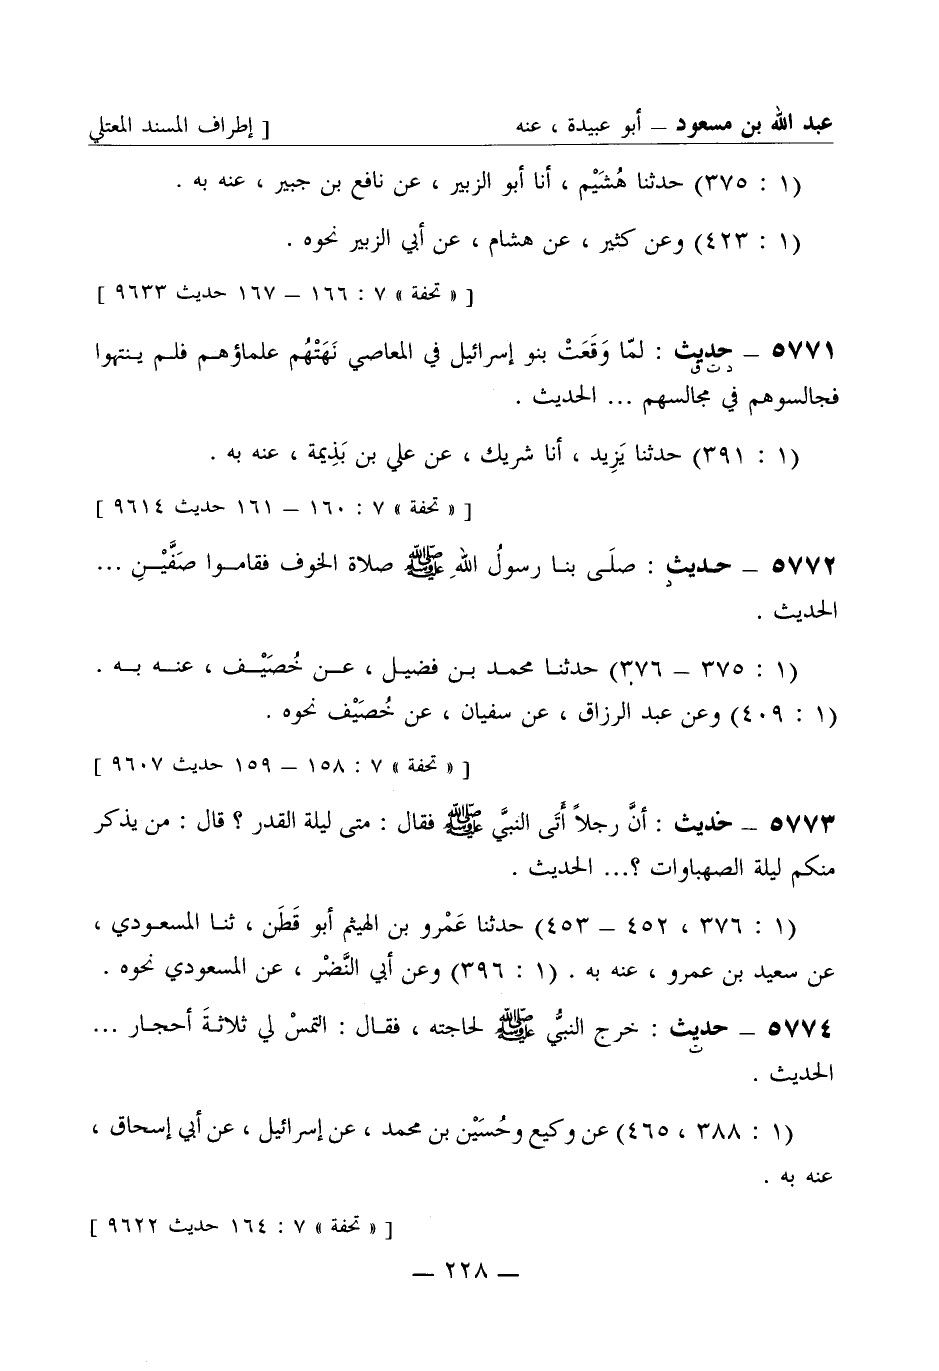 عبد الله بن مسعود – أبو عبيدة ، عنه [ إطراف المسند المعتلي
(١ : ٣٧٥) حدثنا هُشَيْم ، أنا أبو الزبير ، عن نافع بن جبير ، عنه به .
(١ : ٤٢٣) وعن كثير ، عن هشام ، عن أبي الزبير نحوه .
[ « تحفة » ٧ : ١٦٦ – ١٦٧ حديث ٩٦٣٣ ]
٥٧٧١ – حديث : لمّا وَقَعَتْ بنو إسرائيل في المعاصي نَهَتْهُم علماؤهم فلم ينتهوا
د ت ق
فجالسوهم في مجالسهم ... الحديث .
(١ : ٣٩١) حدثنا يَزِيد ، أنا شريك ، عن علي بن بَذِيمة ، عنه به .
[ « تحفة » ٧ : ١٦٠ – ١٦١ حديث ٩٦١٤ ]
٥٧٧٢ – حديث : صلَّى بنا رسولُ اللهِ ﷺ صلاة الخوف فقاموا صَفَّيْنِ ...
د
الحديث .
(١ : ٣٧٥ – ٣٧٦) حدثنا محمد بن فضيل ، عن خُصَيْف ، عنه به .
(١ : ٤٠٩) وعن عبد الرزاق ، عن سفيان ، عن خُصَيْف نحوه .
[ « تحفة » ٧ : ١٥٨ – ١٥٩ حديث ٩٦٠٧ ]
٥٧٧٣ – حديث : أنَّ رجلاً أَتَى النبيَّ ﷺ فقال : متى ليلة القدر ؟ قال : من يذكر
منكم ليلة الصهباوات ؟... الحديث .
(١ : ٣٧٦ ، ٤٥٢ – ٤٥٣) حدثنا عَمْرو بن الهيثم أبو قَطَن ، ثنا المسعودي ،
عن سعيد بن عمرو ، عنه به . (١ : ٣٩٦) وعن أبي النَّضْر ، عن المسعودي نحوه .
٥٧٧٤ – حديث : خرج النبيُّ ﷺ لحاجته ، فقال : التمسْ لي ثلاثةَ أحجار ...
ت
الحديث .
(١ : ٣٨٨ ، ٤٦٥) عن وكيع وحُسَيْن بن محمد ، عن إسرائيل ، عن أبي إسحاق ،
عنه به .
[ « تحفة » ٧ : ١٦٤ حديث ٩٦٢٢ ]
– ٢٢٨ –